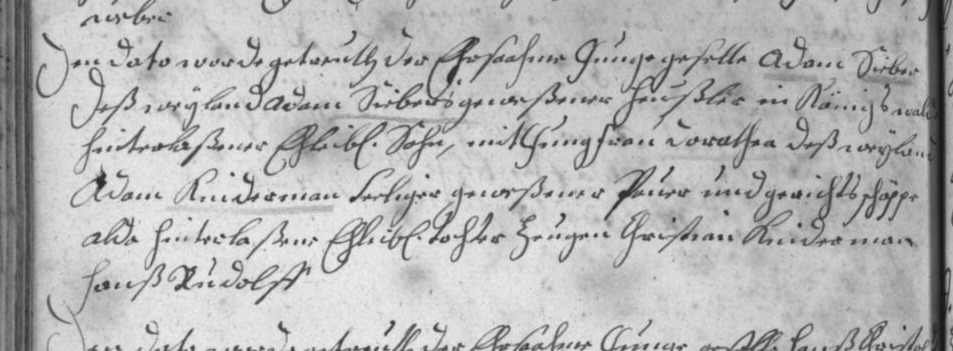 Den dato worde getreuth der Ehrsahme Junge geselle Adam Sieber
deß weyland Adam Siebers geweßener heußler in Königswald
hinterlaßener Ehleibl. Sohn, mit Jungfrau Dorothea deß weyland
Adam Kinderman Seeliger geweßener Pauer und gerichts schöppe
alda hinterlaßene Ehleibl tochter Zeugen Christian Kinderman
Hanß Rudolff
Den dato worde getreuth der Ehrsahme Junge geselle Hanß Christoph